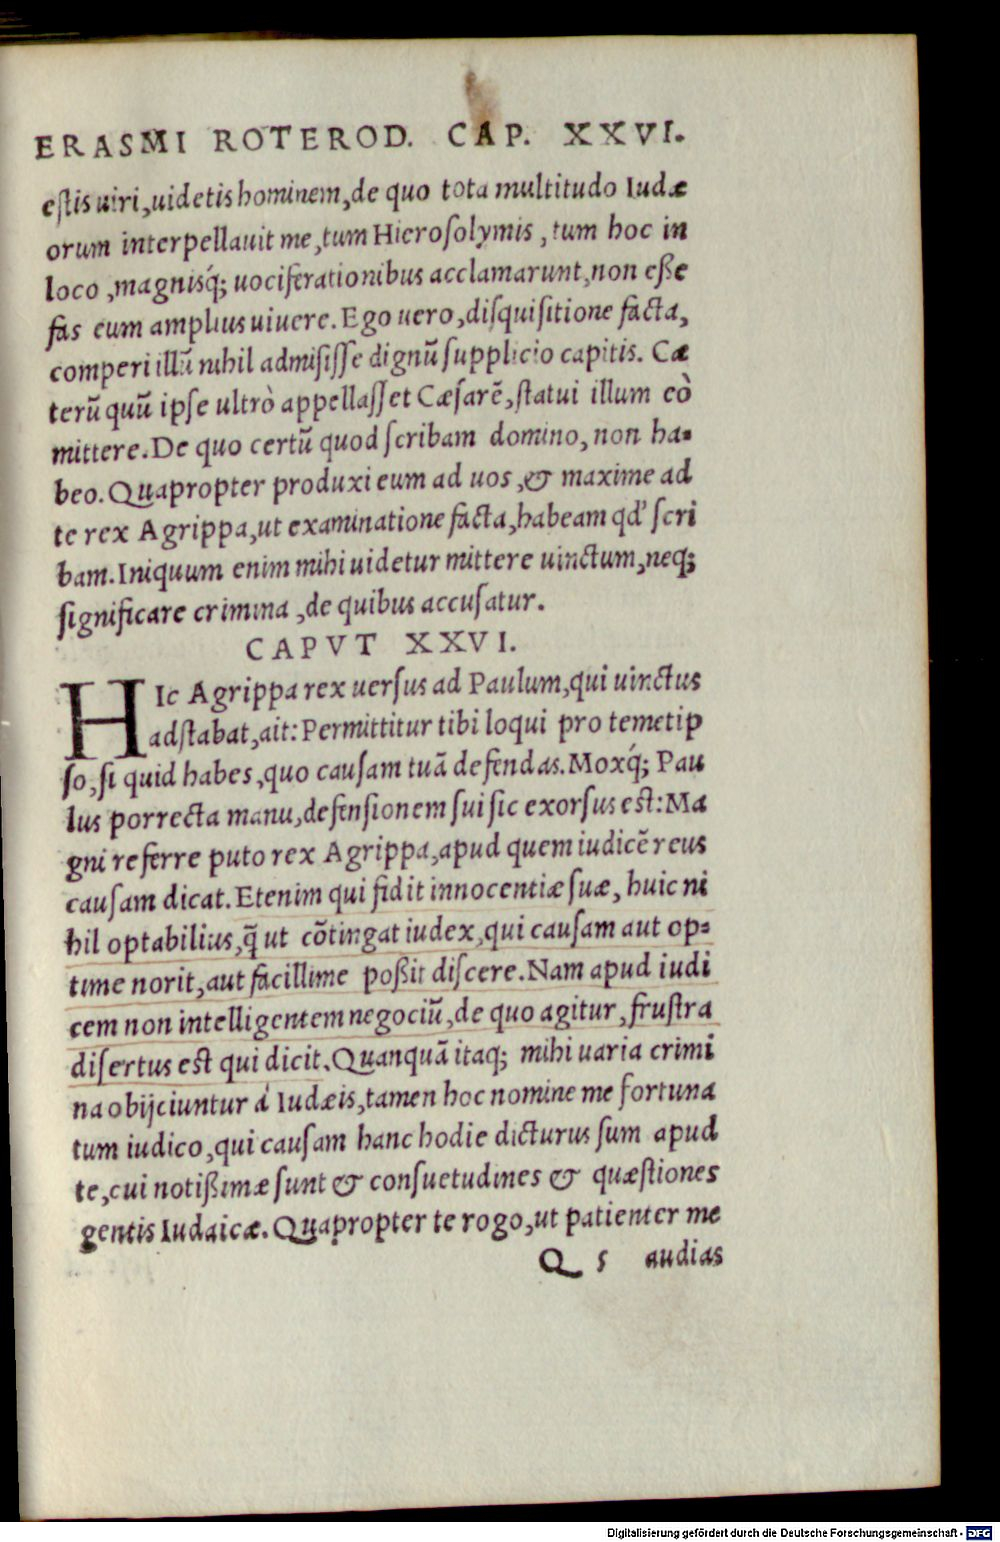 ERASMI ROTEROD. CAP. XXVI.
eſtis uiri, uidetis hominem, de quo tota multitudo Iudæ
orum interpellauit me, tum Hieroſolymis, tum hoc in
loco, magnisq́; uociferationibus acclamarunt, non eße
fas eum amplius uiuere. Ego uero, diſquiſitione facta,
comperi illũ nihil admiſiſſe dignũ ſupplicio capitis. Cæ
terũ quũ ipſe ultrò appellaſſet Cæſarẽ, ſtatui illum eò
mittere. De quo certũ quod ſcribam domino, non ha-
beo. Quapropter produxi eum ad uos, & maxime ad
te rex Agrippa, ut examinatione facta, habeam qd' ſcri
bam. Iniquum enim mihi uidetur mittere uinctum, neq;
ſignificare crimina, de quibus accuſatur.
CAPVT XXVI.
HIc Agrippa rex uerſus ad Paulum, qui uinctus
adſtabat, ait: Permittitur tibi loqui pro temetip
ſo, ſi quid habes, quo cauſam tuã defendas. Moxq́; Pau
lus porrecta manu, defenſionem ſui ſic exorſus eſt: Ma
gni referre puto rex Agrippa, apud quem iudicẽ reus
cauſam dicat. Etenim qui fidit innocentiæ ſuæ, huic ni
hil optabilius, q̃ ut cõtingat iudex, qui cauſam aut op-
time norit, aut facillime poßit diſcere. Nam apud iudi
cem non intelligentem negociũ, de quo agitur, fruſtra
diſertus eſt qui dicit. Quanquã itaq; mihi uaria crimi
na obijciuntur à Iudæis, tamen hoc nomine me fortuna
tum iudico, qui cauſam hanc hodie dicturus ſum apud
te, cui notißimæ ſunt & conſuetudines & quæſtiones
gentis Iudaicæ. Quapropter te rogo, ut patienter me
Q 5 audias
Digitalisierung gefördert durch die Deutsche Forschungsgemeinschaft - DFG